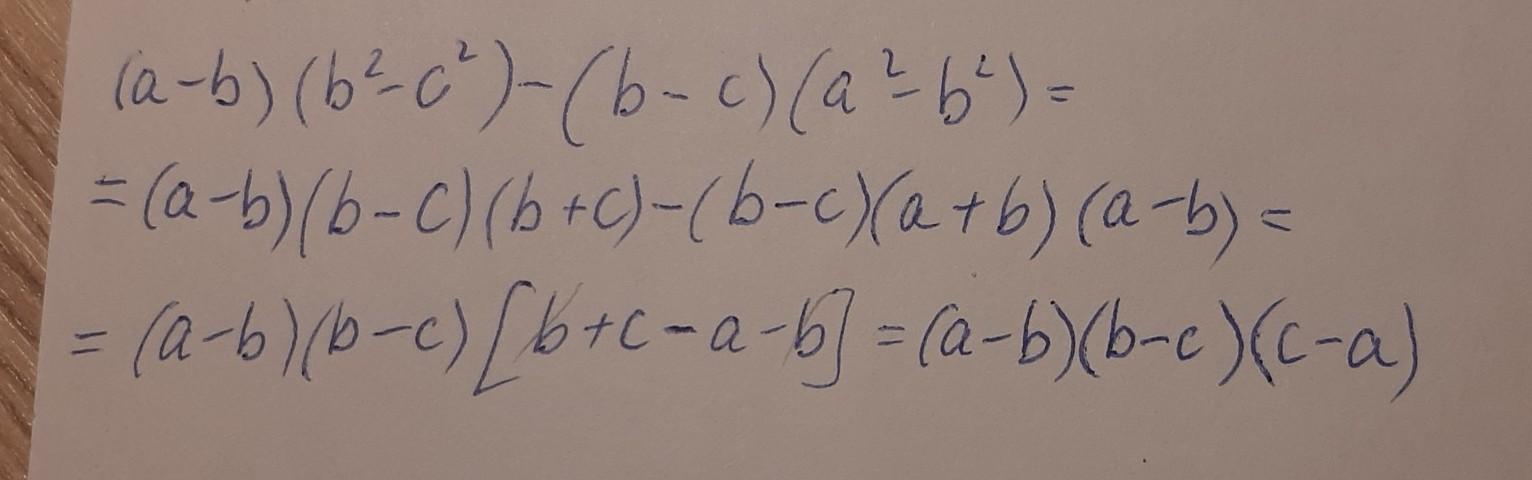 (a-b)(b²-c²)-(b-c)(a²-b²)=
=(a-b)(b-c)(b+c)-(b-c)(a+b)(a-b)=
=(a-b)(b-c)[b+c-a-b]=(a-b)(b-c)(c-a)